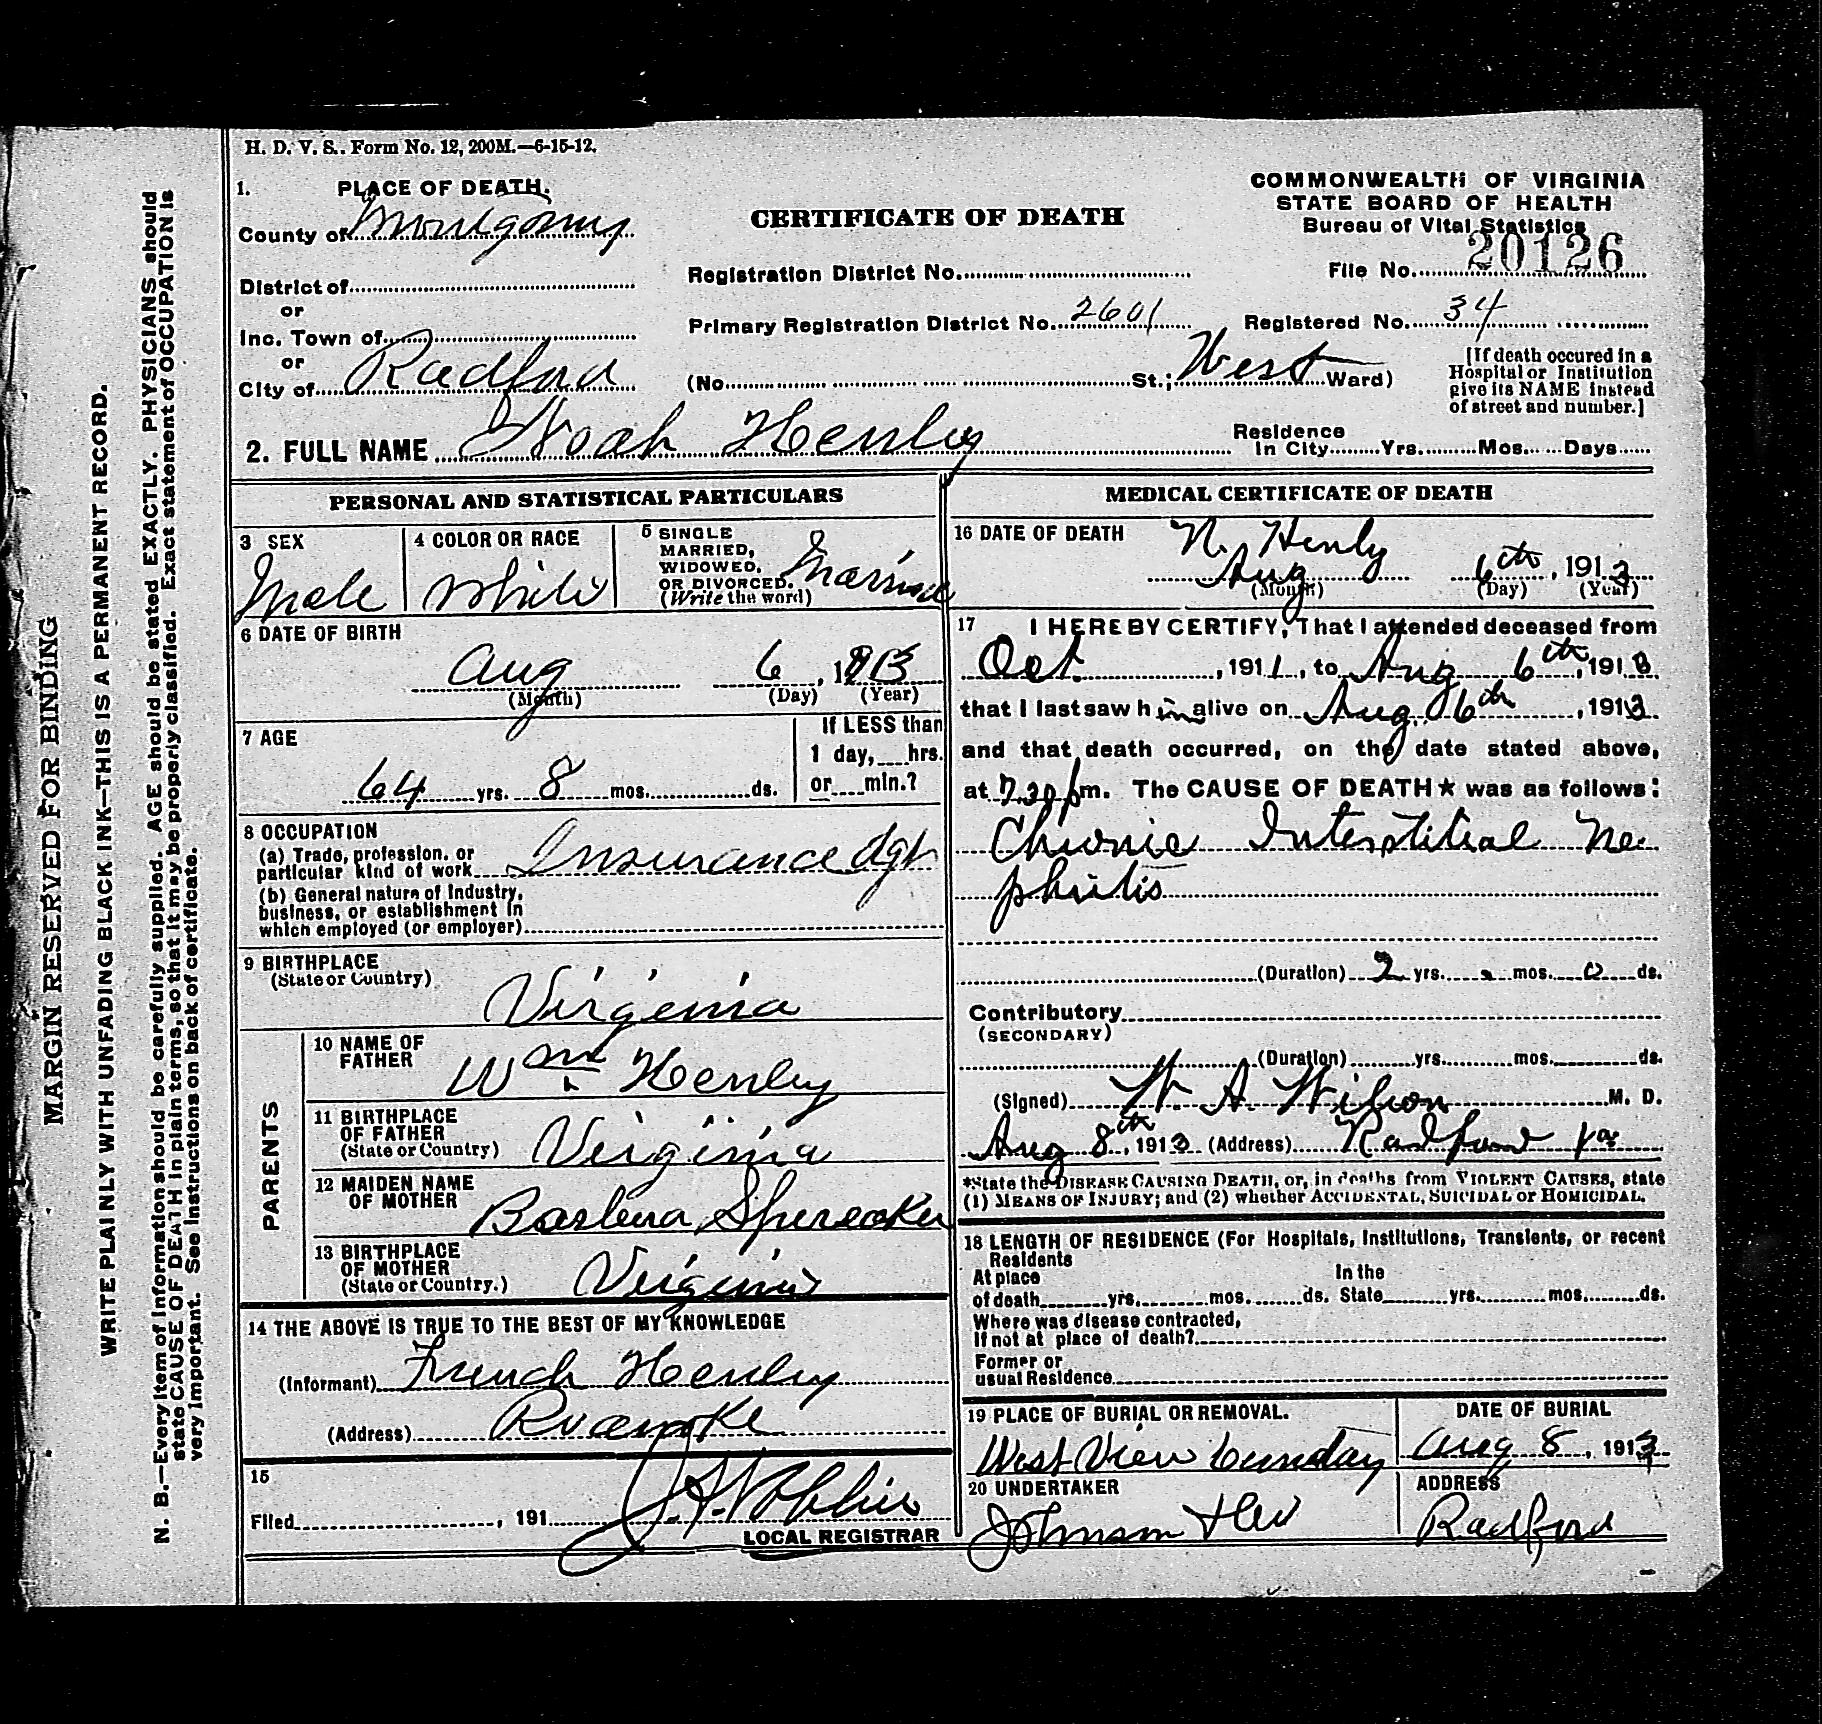 H. D. V. S.. Form No. 12, 200M.—6-15-12.
1. PLACE OF DEATH.
County of Montgomry
District of
or
Inc. Town of
or
City of Radford
CERTIFICATE OF DEATH
Registration District No.
Primary Registration District No. 2601
(No. St.; West Ward)
COMMONWEALTH OF VIRGINIA
STATE BOARD OF HEALTH
Bureau of Vital Statistics
File No. 20126
Registered No. 34
[If death occured in a
Hospital or Institution
give its NAME instead
of street and number.]
2. FULL NAME Noah Henley
Residence
In City Yrs. Mos. Days
PERSONAL AND STATISTICAL PARTICULARS
3 SEX
Male
4 COLOR OR RACE
White
5 SINGLE
MARRIED,
WIDOWED,
OR DIVORCED.
(Write the word)
Married
6 DATE OF BIRTH
Aug 6, 1913
(Month) (Day) (Year)
7 AGE
64 yrs. 8 mos. ds.
If LESS than
1 day, hrs.
or min.?
8 OCCUPATION
(a) Trade, profession, or
particular kind of work Insurance Agt
(b) General nature of industry,
business, or establishment in
which employed (or employer)
9 BIRTHPLACE
(State or Country)
Virginia
PARENTS
10 NAME OF
FATHER
Wm Henley
11 BIRTHPLACE
OF FATHER
(State or Country)
Virginia
12 MAIDEN NAME
OF MOTHER
Barbera
13 BIRTHPLACE
OF MOTHER
(State or Country.)
Virginia
14 THE ABOVE IS TRUE TO THE BEST OF MY KNOWLEDGE
(Informant) French Henley
(Address) Roanoke
15
Filed , 191
LOCAL REGISTRAR
MEDICAL CERTIFICATE OF DEATH
16 DATE OF DEATH
N. Henly
Aug 6th, 1913
(Month) (Day) (Year)
17 I HEREBY CERTIFY, That I attended deceased from
Oct. , 1911, to Aug 6th, 1913
that I last saw him alive on Aug. 6th , 1913
and that death occurred, on the date stated above,
at 7.30 pm. The CAUSE OF DEATH★ was as follows:
Chronic Interstitial Ne
phritis
(Duration) 2 yrs. mos. 0 ds.
Contributory
(SECONDARY)
(Duration) yrs. mos. ds.
(Signed) W A. Wilson M. D.
Aug 8th, 1913 (Address) Radford Va
*State the DISEASE CAUSING DEATH, or, in deaths from VIOLENT CAUSES, state
(1) MEANS OF INJURY; and (2) whether ACCIDENTAL, SUICIDAL or HOMICIDAL.
18 LENGTH OF RESIDENCE (For Hospitals, Institutions, Transients, or recent
Residents
At place In the
of death yrs. mos. ds. State yrs. mos. ds.
Where was disease contracted,
If not at place of death?
Former or
usual Residence
19 PLACE OF BURIAL OR REMOVAL.
West View
DATE OF BURIAL
Aug 8, 1913
20 UNDERTAKER
Johnson
ADDRESS
Radford
MARGIN RESERVED FOR BINDING
WRITE PLAINLY WITH UNFADING BLACK INK—THIS IS A PERMANENT RECORD.
N. B.—Every item of information should be carefully supplied. AGE should be stated EXACTLY. PHYSICIANS should
state CAUSE OF DEATH in plain terms, so that it may be properly classified. Exact statement of OCCUPATION is
very important. See instructions on back of certificate.